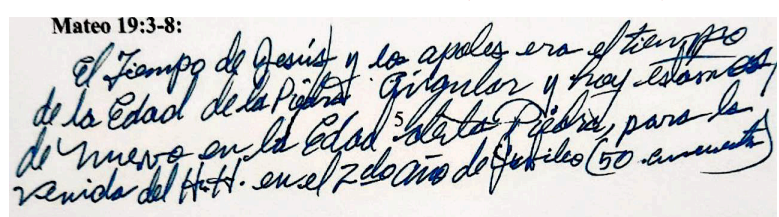 Mateo 19:3-8:
El Tiempo de Jesús y los apoles era el tiempo
de la Edad de la Piedra Angular y hoy estamos
de nuevo en la Edad de la Piedra, para la
venida del H.H. en el 2do año de Jubileo (50 cincuenta)